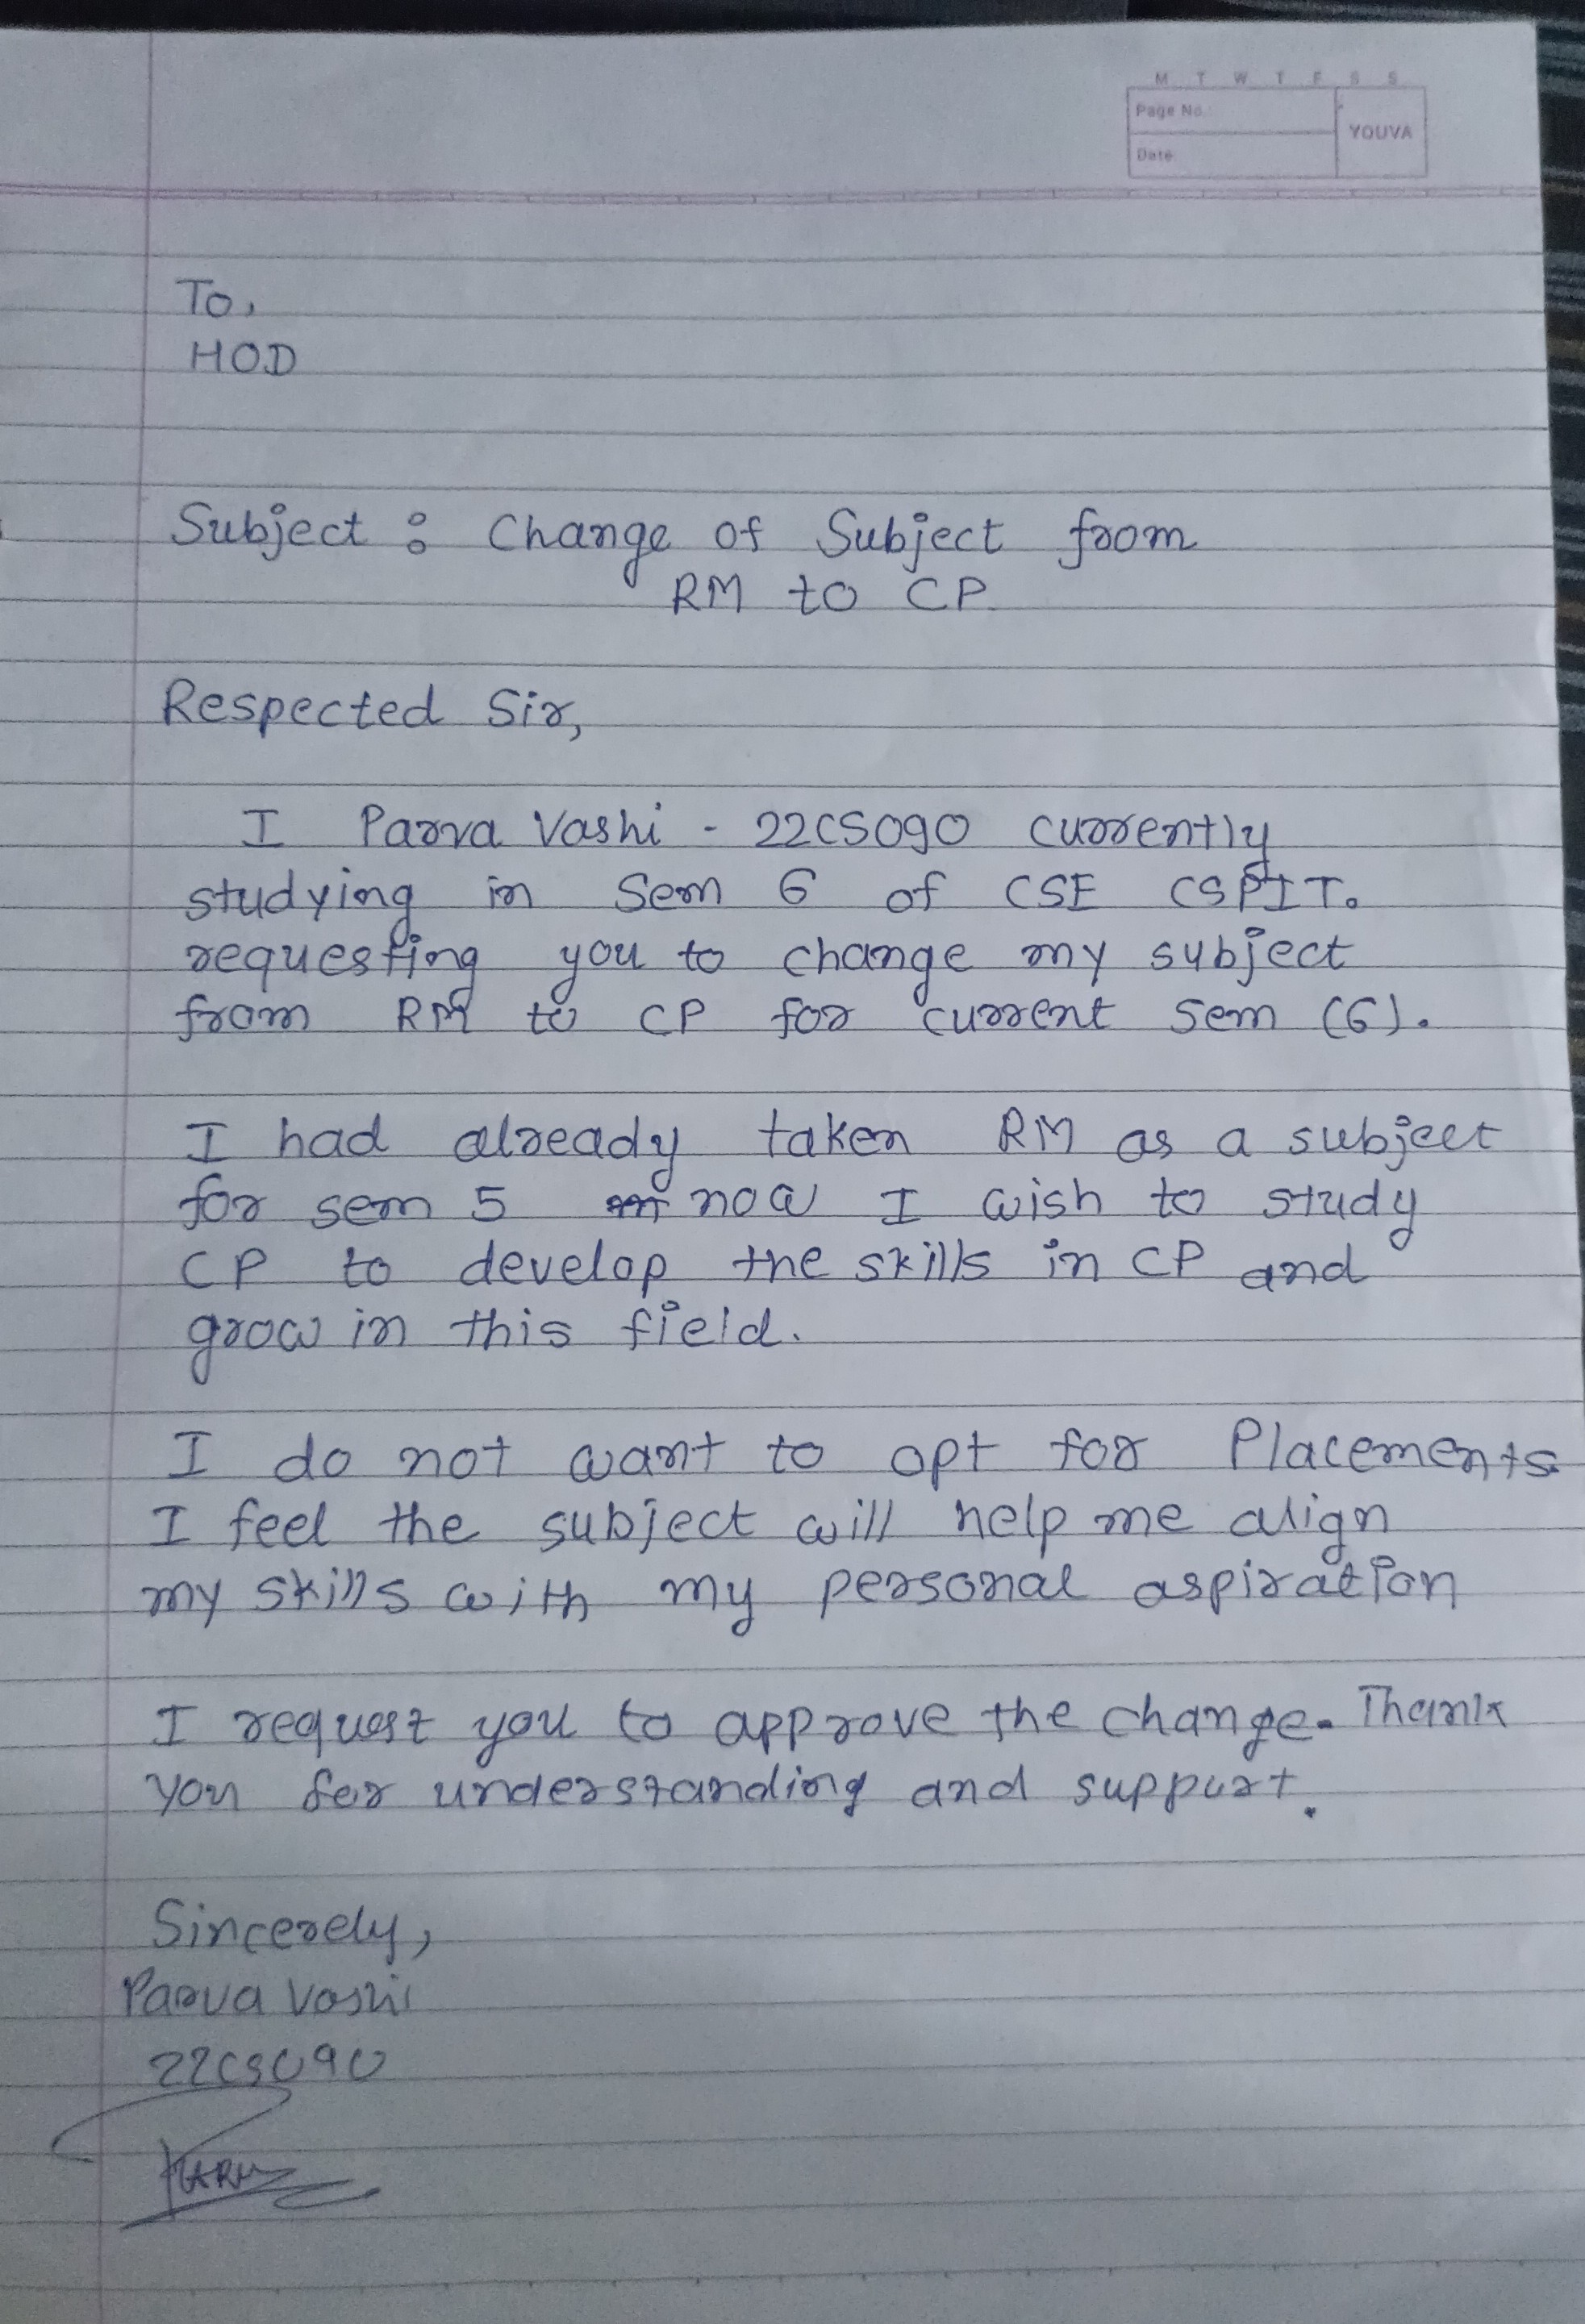 M T W T F S S
Page No.:
YOUVA
Date
To,
HOD
Subject : Change of Subject from
RM to CP.
Respected Sir,
I Parva Vashi - 22CS090 currently
studying in Sem 6 of CSE CSPIT.
requesting you to change my subject
from RM to CP for current sem (6).
I had already taken RM as a subject
for sem 5 now I wish to study
CP to develop the skills in CP and
grow in this field.
I do not want to opt for Placements.
I feel the subject will help me align
my skills with my personal aspiration
I request you to approve the change. Thank
you for understanding and support.
Sincerely,
Parva Vashi
22CS090